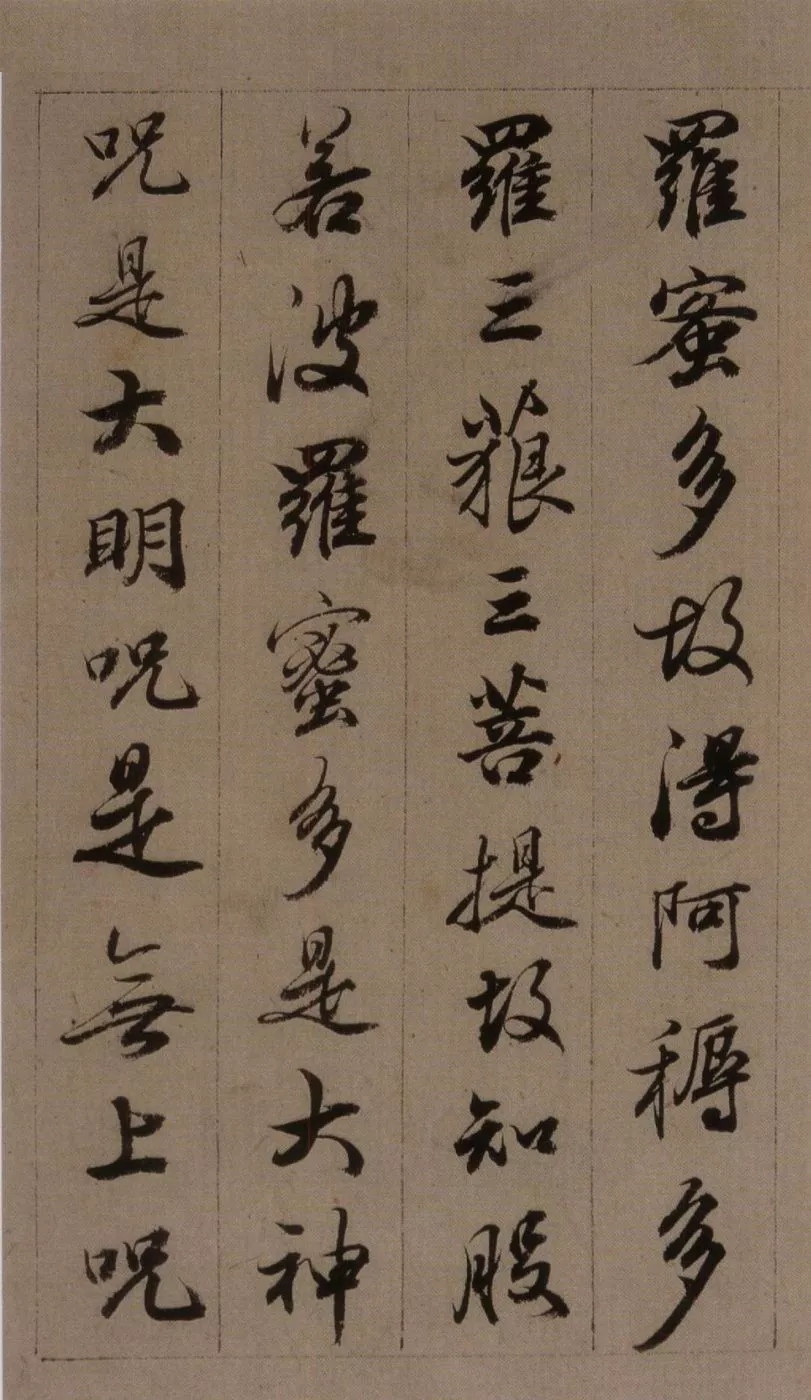 羅蜜多故得阿耨多
羅三藐三菩提故知般
若波羅蜜多是大神
呪是大明呪是無上呪